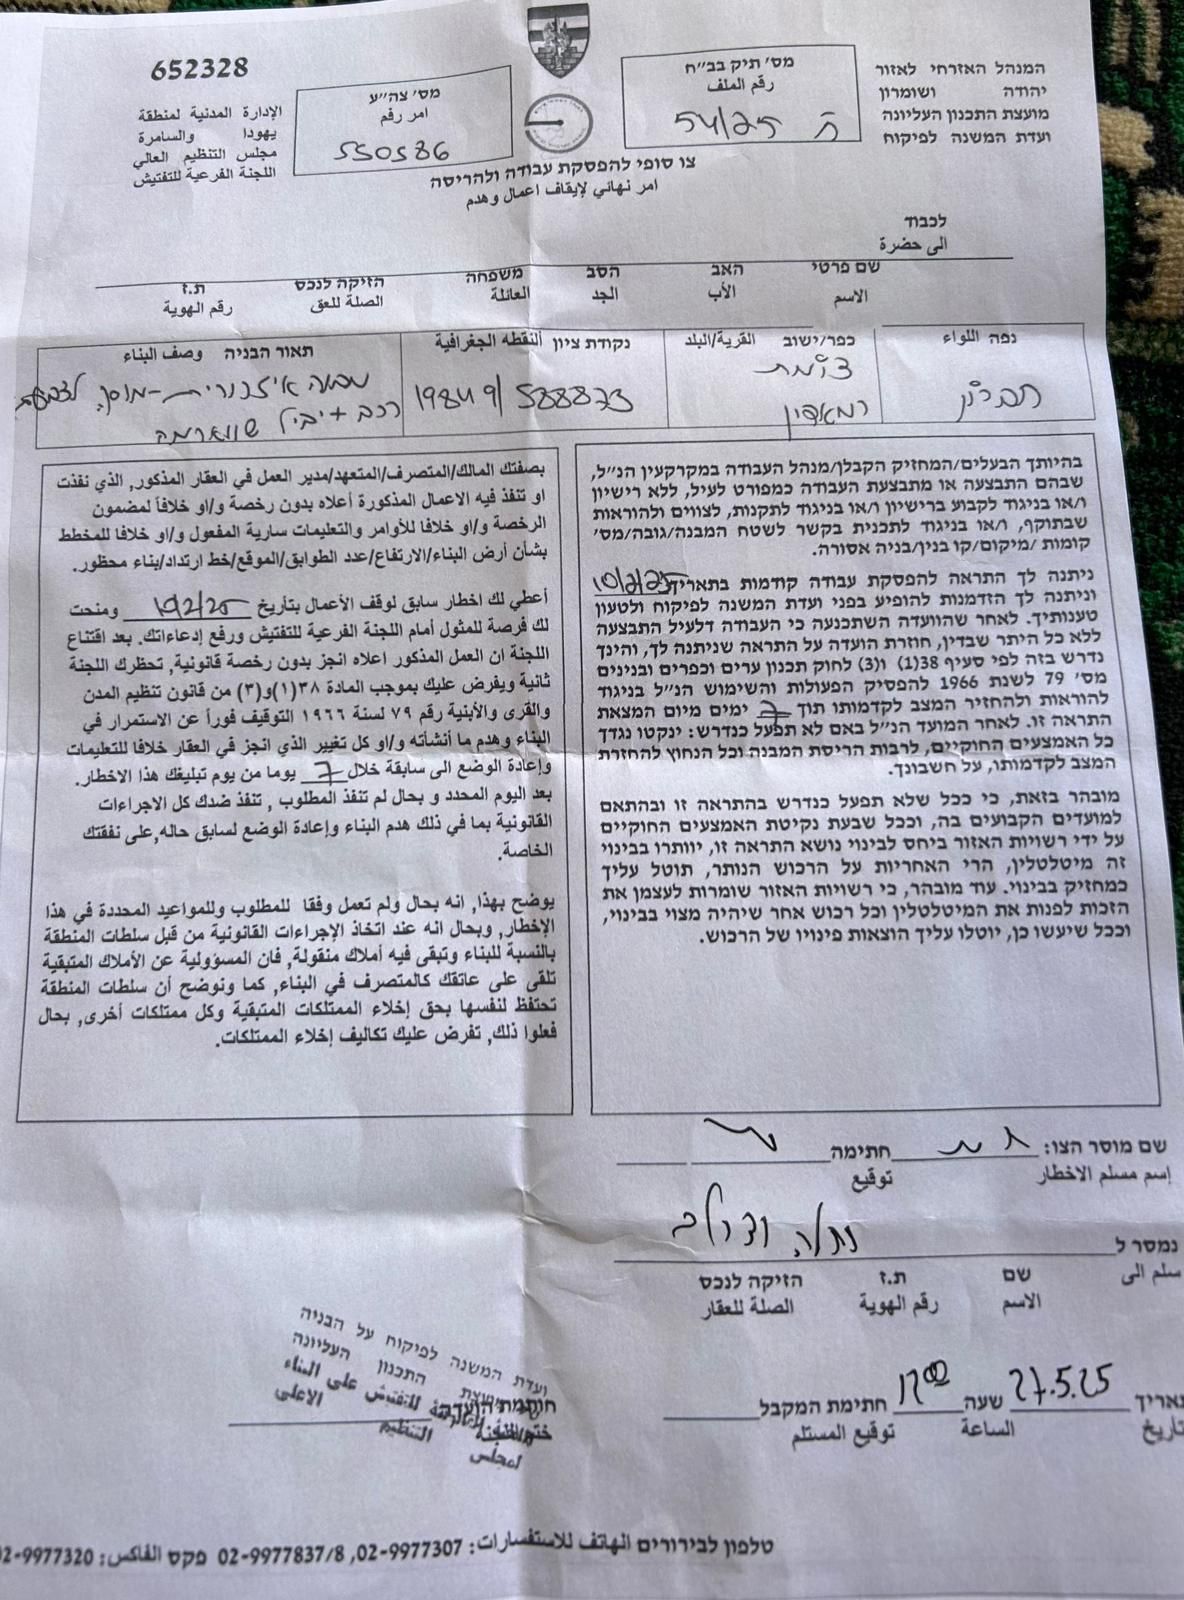 652328
המנהל האזרחי לאזור
יהודה ושומרון
מועצת התכנון העליונה
ועדת המשנה לפיקוח
מס' תיק בב"ח
رقم الملف
ח 54/25
מס' צה"ע
امر رقم
550586
الإدارة المدنية لمنطقة
يهودا والسامرة
مجلس التنظيم العالي
اللجنة الفرعية للتفتيش
צו סופי להפסקת עבודה ולהריסה
امر نهائي لإيقاف اعمال وهدم
לכבוד
الى حضرة
שם פרטי האב הסב משפחה הזיקה לנכס ת.ז
الاسم الأب الجد العائلة الصلة للعق رقم الهوية
נפה اللواء
חברון
כפר/ישוב القرية/البلد
צומת
רמאדין
נקודת ציון النقطه الجغرافية
19849/588873
תאור הבניה وصف البناء
מבנה איסכורית-מוסך לצביעת
רכב + יביל שווארמה
בהיותך הבעלים/המחזיק הקבלן/מנהל העבודה במקרקעין הנ"ל,
שבהם התבצעה או מתבצעת העבודה כמפורט לעיל, ללא רישיון
ו/או בניגוד לקבוע ברישיון ו/או בניגוד לתקנות, לצווים ולהוראות
שבתוקף, ו/או בניגוד לתכנית בקשר לשטח המבנה/גובה/מס'
קומות /מיקום/קו בנין/בניה אסורה.
ניתנה לך התראה להפסקת עבודה קודמות בתאריך 10/2/25
וניתנה לך הזדמנות להופיע בפני ועדת המשנה לפיקוח ולטעון
טענותיך. לאחר שהוועדה השתכנעה כי העבודה דלעיל התבצעה
ללא כל היתר שבדין, חוזרת הועדה על התראה שניתנה לך, והינך
נדרש בזה לפי סעיף 38(1) ו(3) לחוק תכנון ערים וכפרים ובניינים
מס' 79 לשנת 1966 להפסיק הפעולות והשימוש הנ"ל בניגוד
להוראות ולהחזיר המצב לקדמותו תוך 7 ימים מיום המצאת
התראה זו. לאחר המועד הנ"ל באם לא תפעל כנדרש: ינקטו נגדך
כל האמצעים החוקיים, לרבות הריסת המבנה וכל הנחוץ להחזרת
המצב לקדמותו, על חשבונך.
מובהר בזאת, כי ככל שלא תפעל כנדרש בהתראה זו ובהתאם
למועדים הקבועים בה, וככל שבעת נקיטת האמצעים החוקיים
על ידי רשויות האזור ביחס לבינוי נושא התראה זו, יוותרו בבינוי
זה מיטלטלין, הרי האחריות על הרכוש הנותר, תוטל עליך
כמחזיק בבינוי. עוד מובהר, כי רשויות האזור שומרות לעצמן את
הזכות לפנות את המיטלטלין וכל רכוש אחר שיהיה מצוי בבינוי,
וככל שיעשו כן, יוטלו עליך הוצאות פינויו של הרכוש.
بصفتك المالك/المتصرف/المتعهد/مدير العمل في العقار المذكور, الذي نفذت
او تنفذ فيه الاعمال المذكورة أعلاه بدون رخصة و/او خلافاً لمضمون
الرخصة و/او خلافا للأوامر والتعليمات سارية المفعول و/او خلافا للمخطط
بشأن أرض البناء/الارتفاع/عدد الطوابق/الموقع/خط ارتداد/بناء محظور.
أعطي لك اخطار سابق لوقف الأعمال بتأريخ 10/2/25 ومنحت
لك فرصة للمثول أمام اللجنة الفرعية للتفتيش ورفع إدعاءاتك. بعد اقتناع
اللجنة ان العمل المذكور اعلاه انجز بدون رخصة قانونية, تحظرك اللجنة
ثانية ويفرض عليك بموجب المادة ٣٨(١)و(٣) من قانون تنظيم المدن
والقرى والأبنية رقم ٧٩ لسنة ١٩٦٦ التوقيف فوراً عن الاستمرار في
البناء وهدم ما أنشأته و/او كل تغيير الذي انجز في العقار خلافا للتعليمات
وإعادة الوضع الى سابقة خلال 7 يوما من يوم تبليغك هذا الاخطار.
بعد اليوم المحدد و بحال لم تنفذ المطلوب , تنفذ ضدك كل الاجراءات
القانونية بما في ذلك هدم البناء وإعادة الوضع لسابق حاله, على نفقتك
الخاصة.
يوضح بهذا, انه بحال ولم تعمل وفقا للمطلوب وللمواعيد المحددة في هذا
الإخطار, وبحال انه عند اتخاذ الإجراءات القانونية من قبل سلطات المنطقة
بالنسبة للبناء وتبقى فيه أملاك منقولة, فان المسؤولية عن الأملاك المتبقية
تلقى على عاتقك كالمتصرف في البناء, كما ونوضح أن سلطات المنطقة
تحتفظ لنفسها بحق إخلاء الممتلكات المتبقية وكل ممتلكات أخرى, بحال
فعلوا ذلك, تفرض عليك تكاليف إخلاء الممتلكات.
שם מוסר הצו: חתימה
إسم مسلم الاخطار توقيع
נמסר ל
سلم الى
שם ת.ז הזיקה לנכס
الاسم رقم الهوية الصلة للعقار
תאריך 27.5.25 שעה 12:00 חתימת המקבל
تاريخ الساعة توقيع المستلم
ועדת המשנה לפיקוח על הבניה
התכנון העליונה
للتفتيش على البناء
التنظيم الاعلى
لمجلس
טלפון לבירורים الهاتف للاستفسارات: 02-9977307, 02-9977837/8 פקס الفاكس: 02-9977320